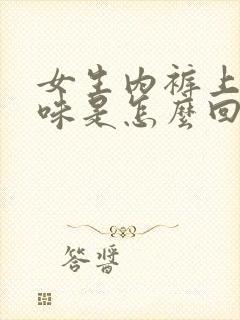 女生内裤上
味是怎麼回
答醫